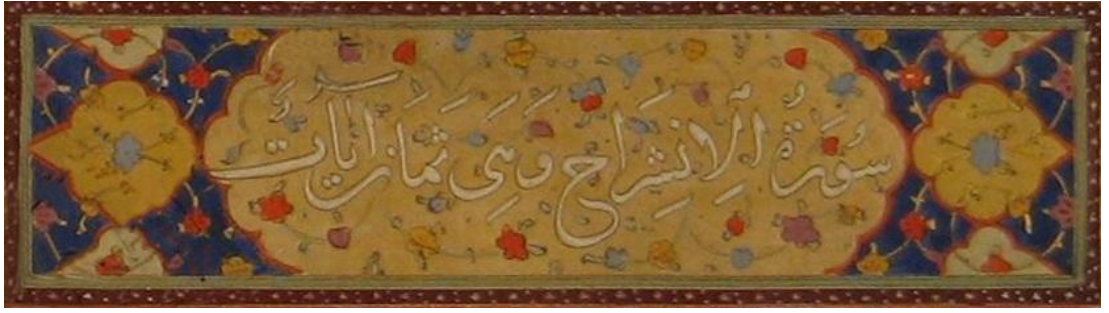 سُورَةُ الْاِنشِرَاحِ وَهِيَ ثَمَانِ آيَاتٍ